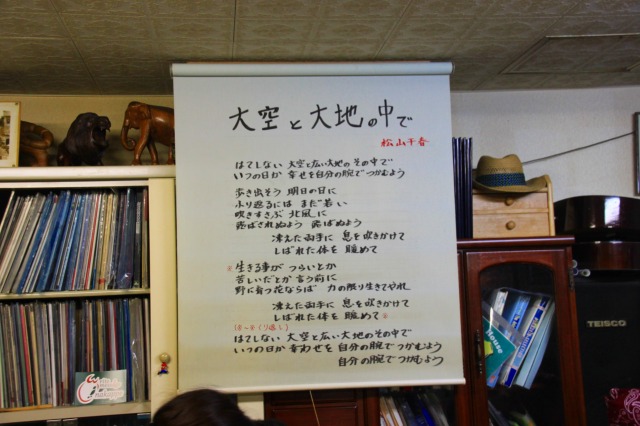 大空と大地の中で
松山千春
はてしない 大空と広い大地の その中で
いつの日か 幸せを自分の腕でつかむよう
歩き出そう 明日の日に
ふり返るには まだ若い
吹きすさぶ 北風に
飛ばされぬよう 飛ばぬよう
凍えた両手に 息を吹きかけて
しばれた体を 暖めて
※生きる事が つらいとか
苦しいだとか 言う前に
野に育つ花ならば 力の限り生きてやれ
凍えた両手に 息を吹きかけて
しばれた体を 暖めて※
はてしない 大空と広い大地のその中で
いつの日か 幸わせを 自分の腕でつかむよう
自分の腕でつかむよう
TEISCO
House